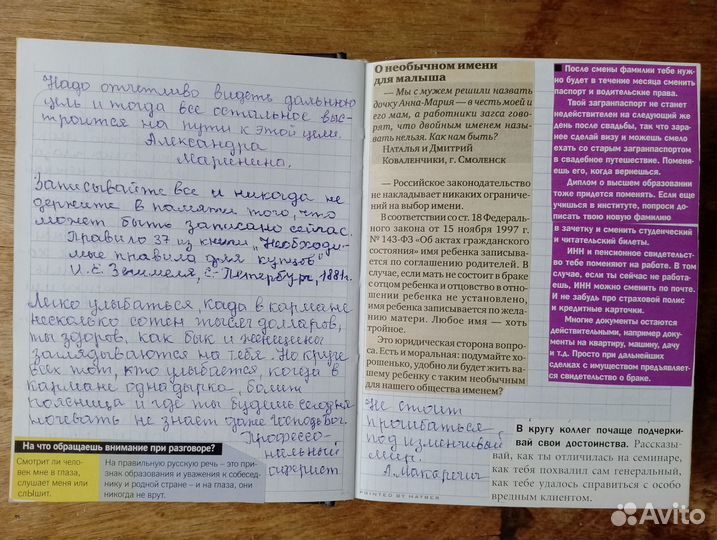 Надо отчетливо видеть дальнюю
цель и тогда все остальное выс-
троится на пути к этой цели.
Александра
Маринина.
Записывайте все и никогда не
держите в памяти того, что
может быть записано сейчас.
Правило 37 из книги „Необходи-
мые правила для купцов"
И.Е. С-Петербург, 1881г.
Легко улыбаться, когда в кармане
несколько сотен тысяч долларов,
ты здоров, как бык и женщины
заглядываются на тебя. Но круче
всех тот, кто улыбается, когда в
кармане одна дырка, болит
поясница и где ты будешь сегодня
ночевать не знает даже Господь Бог.
Професси-
нальный
аферист.
На что обращаешь внимание при разговоре?
Смотрит ли чело-
век мне в глаза,
слушает меня или
слЫшит.
На правильную русскую речь – это при-
знак образования и уважения к собесед-
нику и родной стране – и на глаза, они
никогда не врут.
О необычном имени
для малыша
— Мы с мужем решили назвать
дочку Анна-Мария — в честь моей и
его мам, а работники загса гово-
рят, что двойным именем назы-
вать нельзя. Как нам быть?
Наталья и Дмитрий
Коваленчики, г. Смоленск
— Российское законодательство
не накладывает никаких ограниче-
ний на выбор имени.
В соответствии со ст. 18 Федераль-
ного закона от 15 ноября 1997 г.
№ 143-ФЗ «Об актах гражданского
состояния» имя ребенка записывается
по соглашению родителей. В
случае, если мать не состоит в браке
с отцом ребенка и отцовство в отно-
шении ребенка не установлено,
имя ребенка записывается по жела-
нию матери. Любое имя — хоть
тройное.
Это юридическая сторона вопро-
са. Есть и моральная: подумайте хо-
рошенько, удобно ли будет жить ва-
шему ребенку с таким необычным
для нашего общества именем?
После смены фамилии тебе нуж-
но будет в течение месяца сменить
паспорт и водительские права.
Твой загранпаспорт не станет
недействителен на следующий же
день после свадьбы, так что зара-
нее сделай визу и можешь смело
ехать со старым загранпаспортом
в свадебное путешествие. Поменя-
ешь его, когда вернешься.
Диплом о высшем образовании
тоже придется поменять. Если еще
учишься в институте, попроси до-
писать твою новую фамилию
в зачетку и сменить студенческий
и читательский билеты.
ИНН и пенсионное свидетельст-
во тебе поменяют на работе. В том
случае, если ты сейчас не работа-
ешь, ИНН можно сменить по почте.
И не забудь про страховой полис
и кредитные карточки.
Многие документы остаются
действительными, например доку-
менты на квартиру, машину, дачу
и т.д. Просто при дальнейших
сделках с имуществом предъявляет-
ся свидетельство о браке.
Не стоит
прогибаться
под изменчивый
мир.
А. Макаревич
В кругу коллег почаще подчерки-
вай свои достоинства. Рассказы-
вай, как ты отличилась на семинаре,
как тебя похвалил сам генеральный,
как тебе удалось справиться с особо
вредным клиентом.
PRINTED BY HATBER
Avito